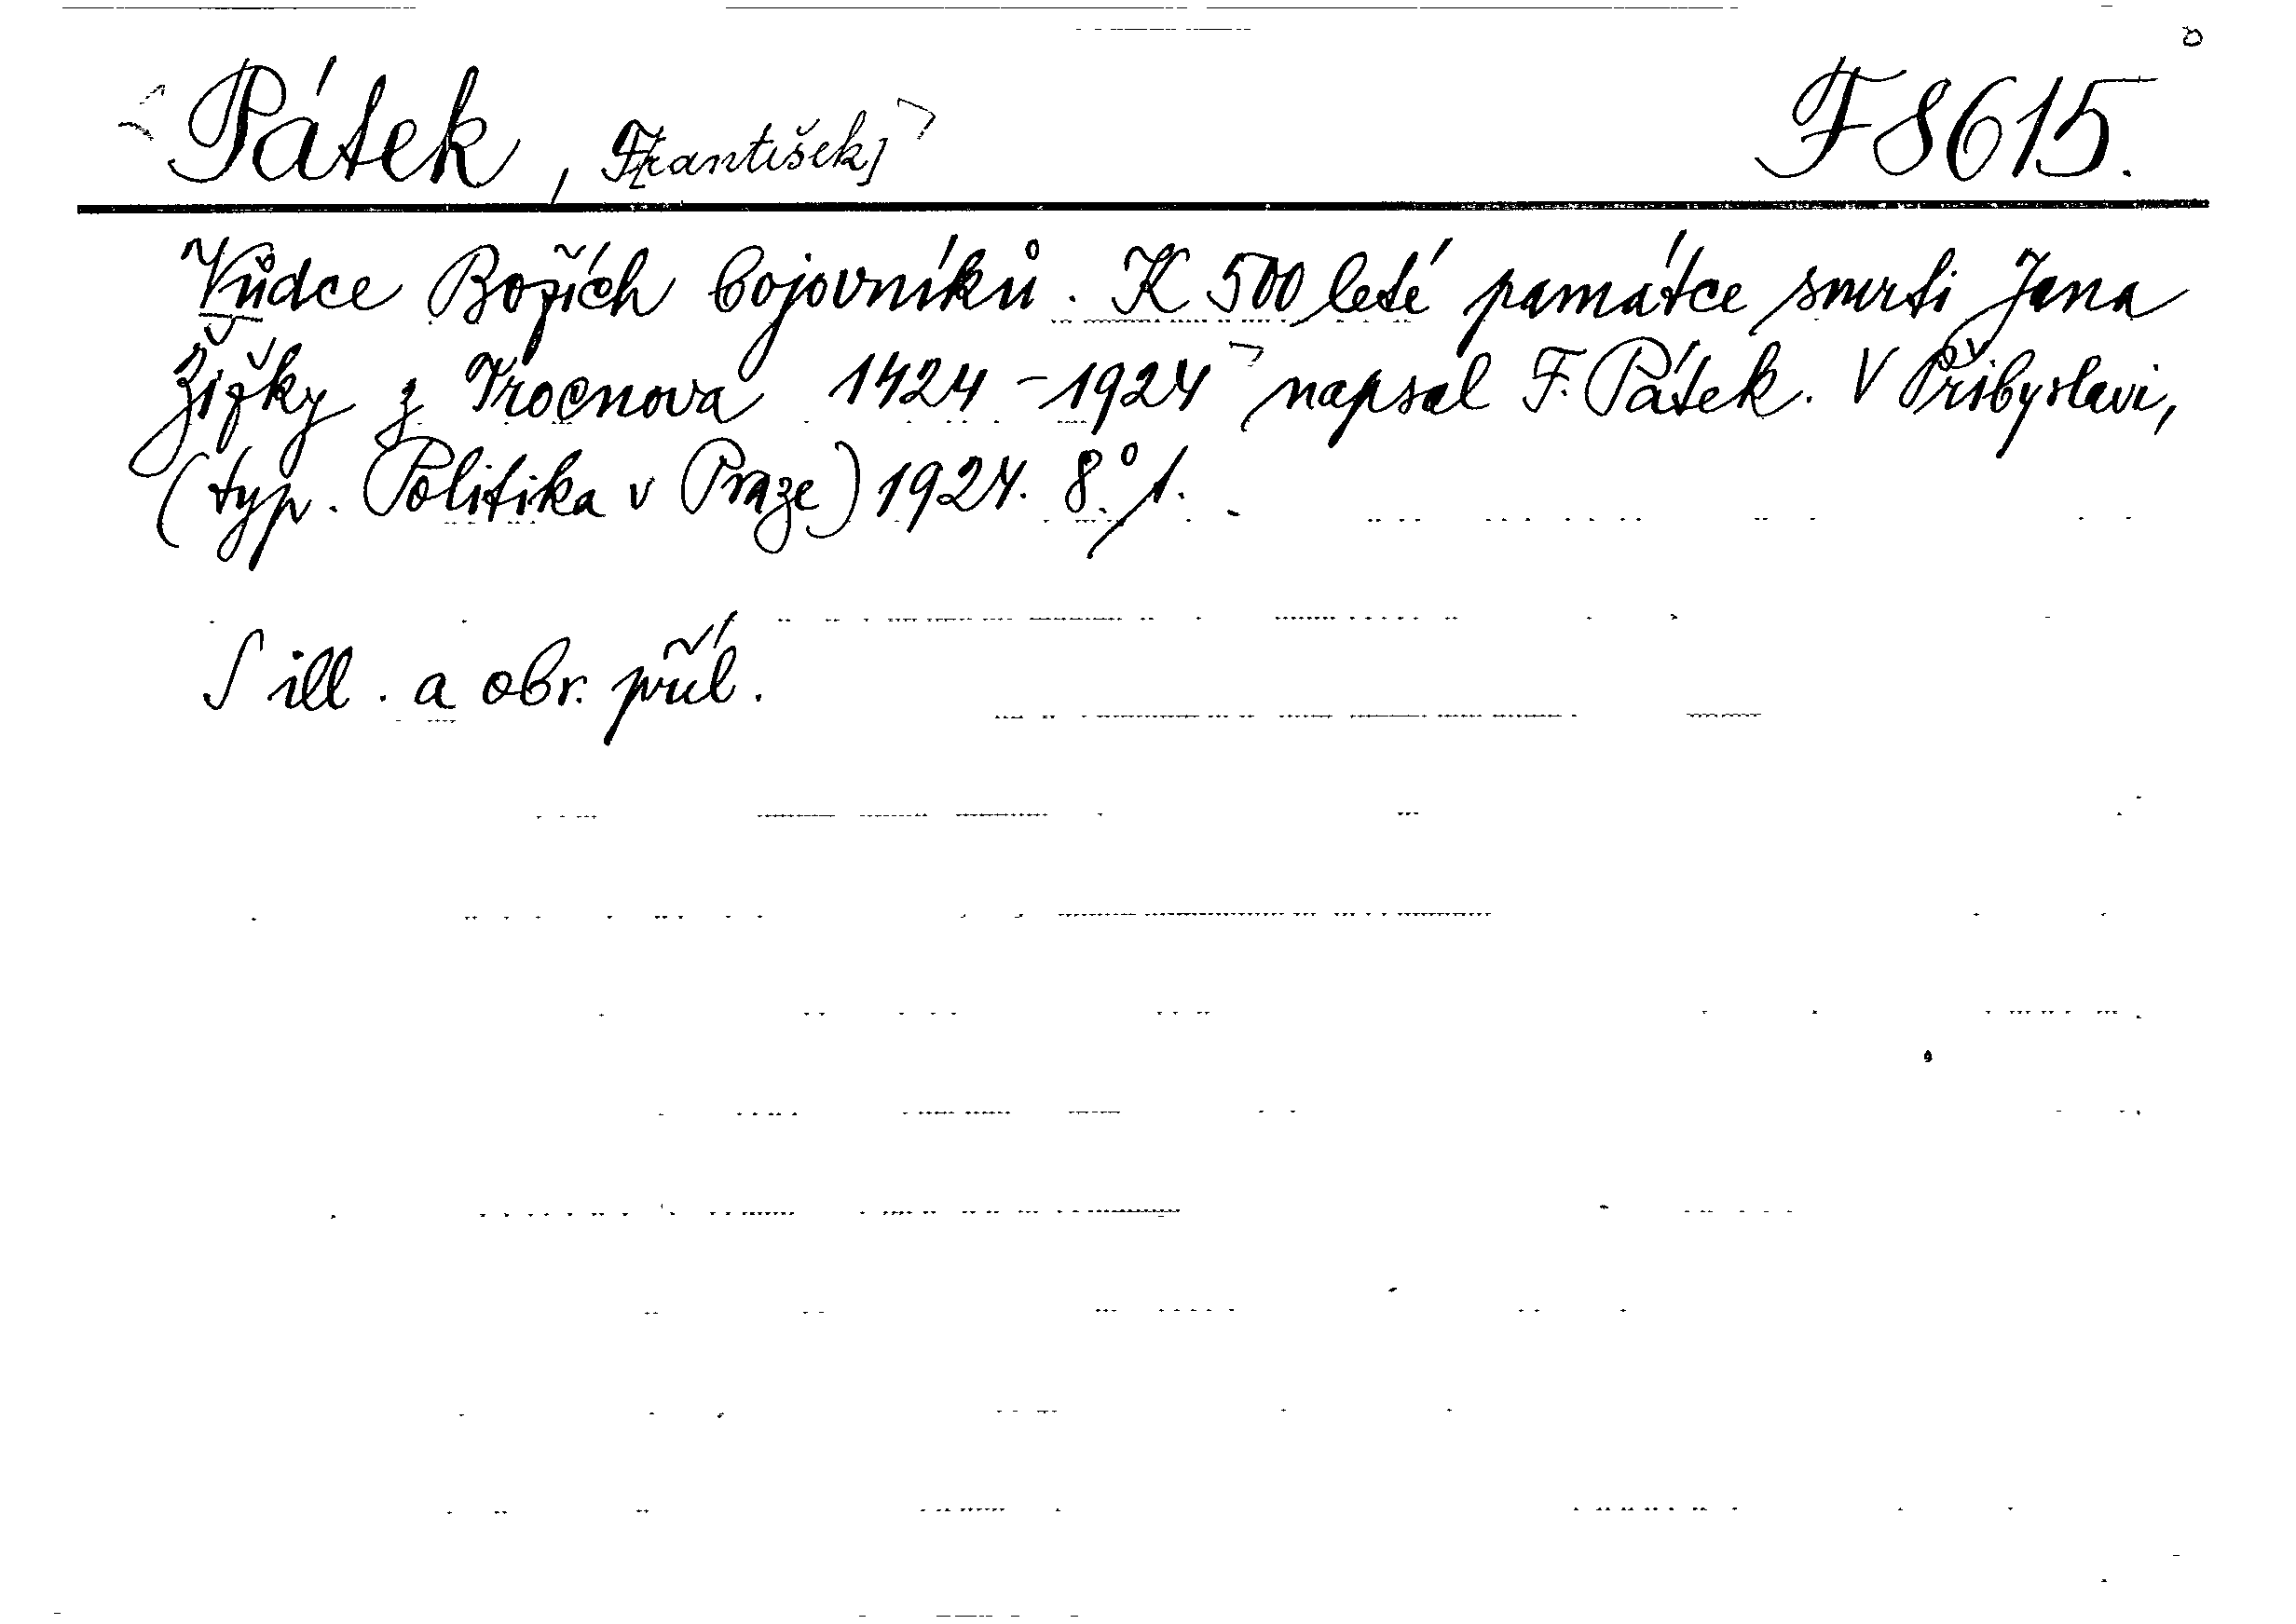 Pátek, F[rantišek] F 8615.
Vůdce Božích bojovníků. K 500 leté památce smrti Jana
Žižky z Trocnova 1424-1924 napsal F. Pátek. V Přibyslavi,
(typ. Politika v Praze) 1924. 8° /.
S ill. a obr. příl.